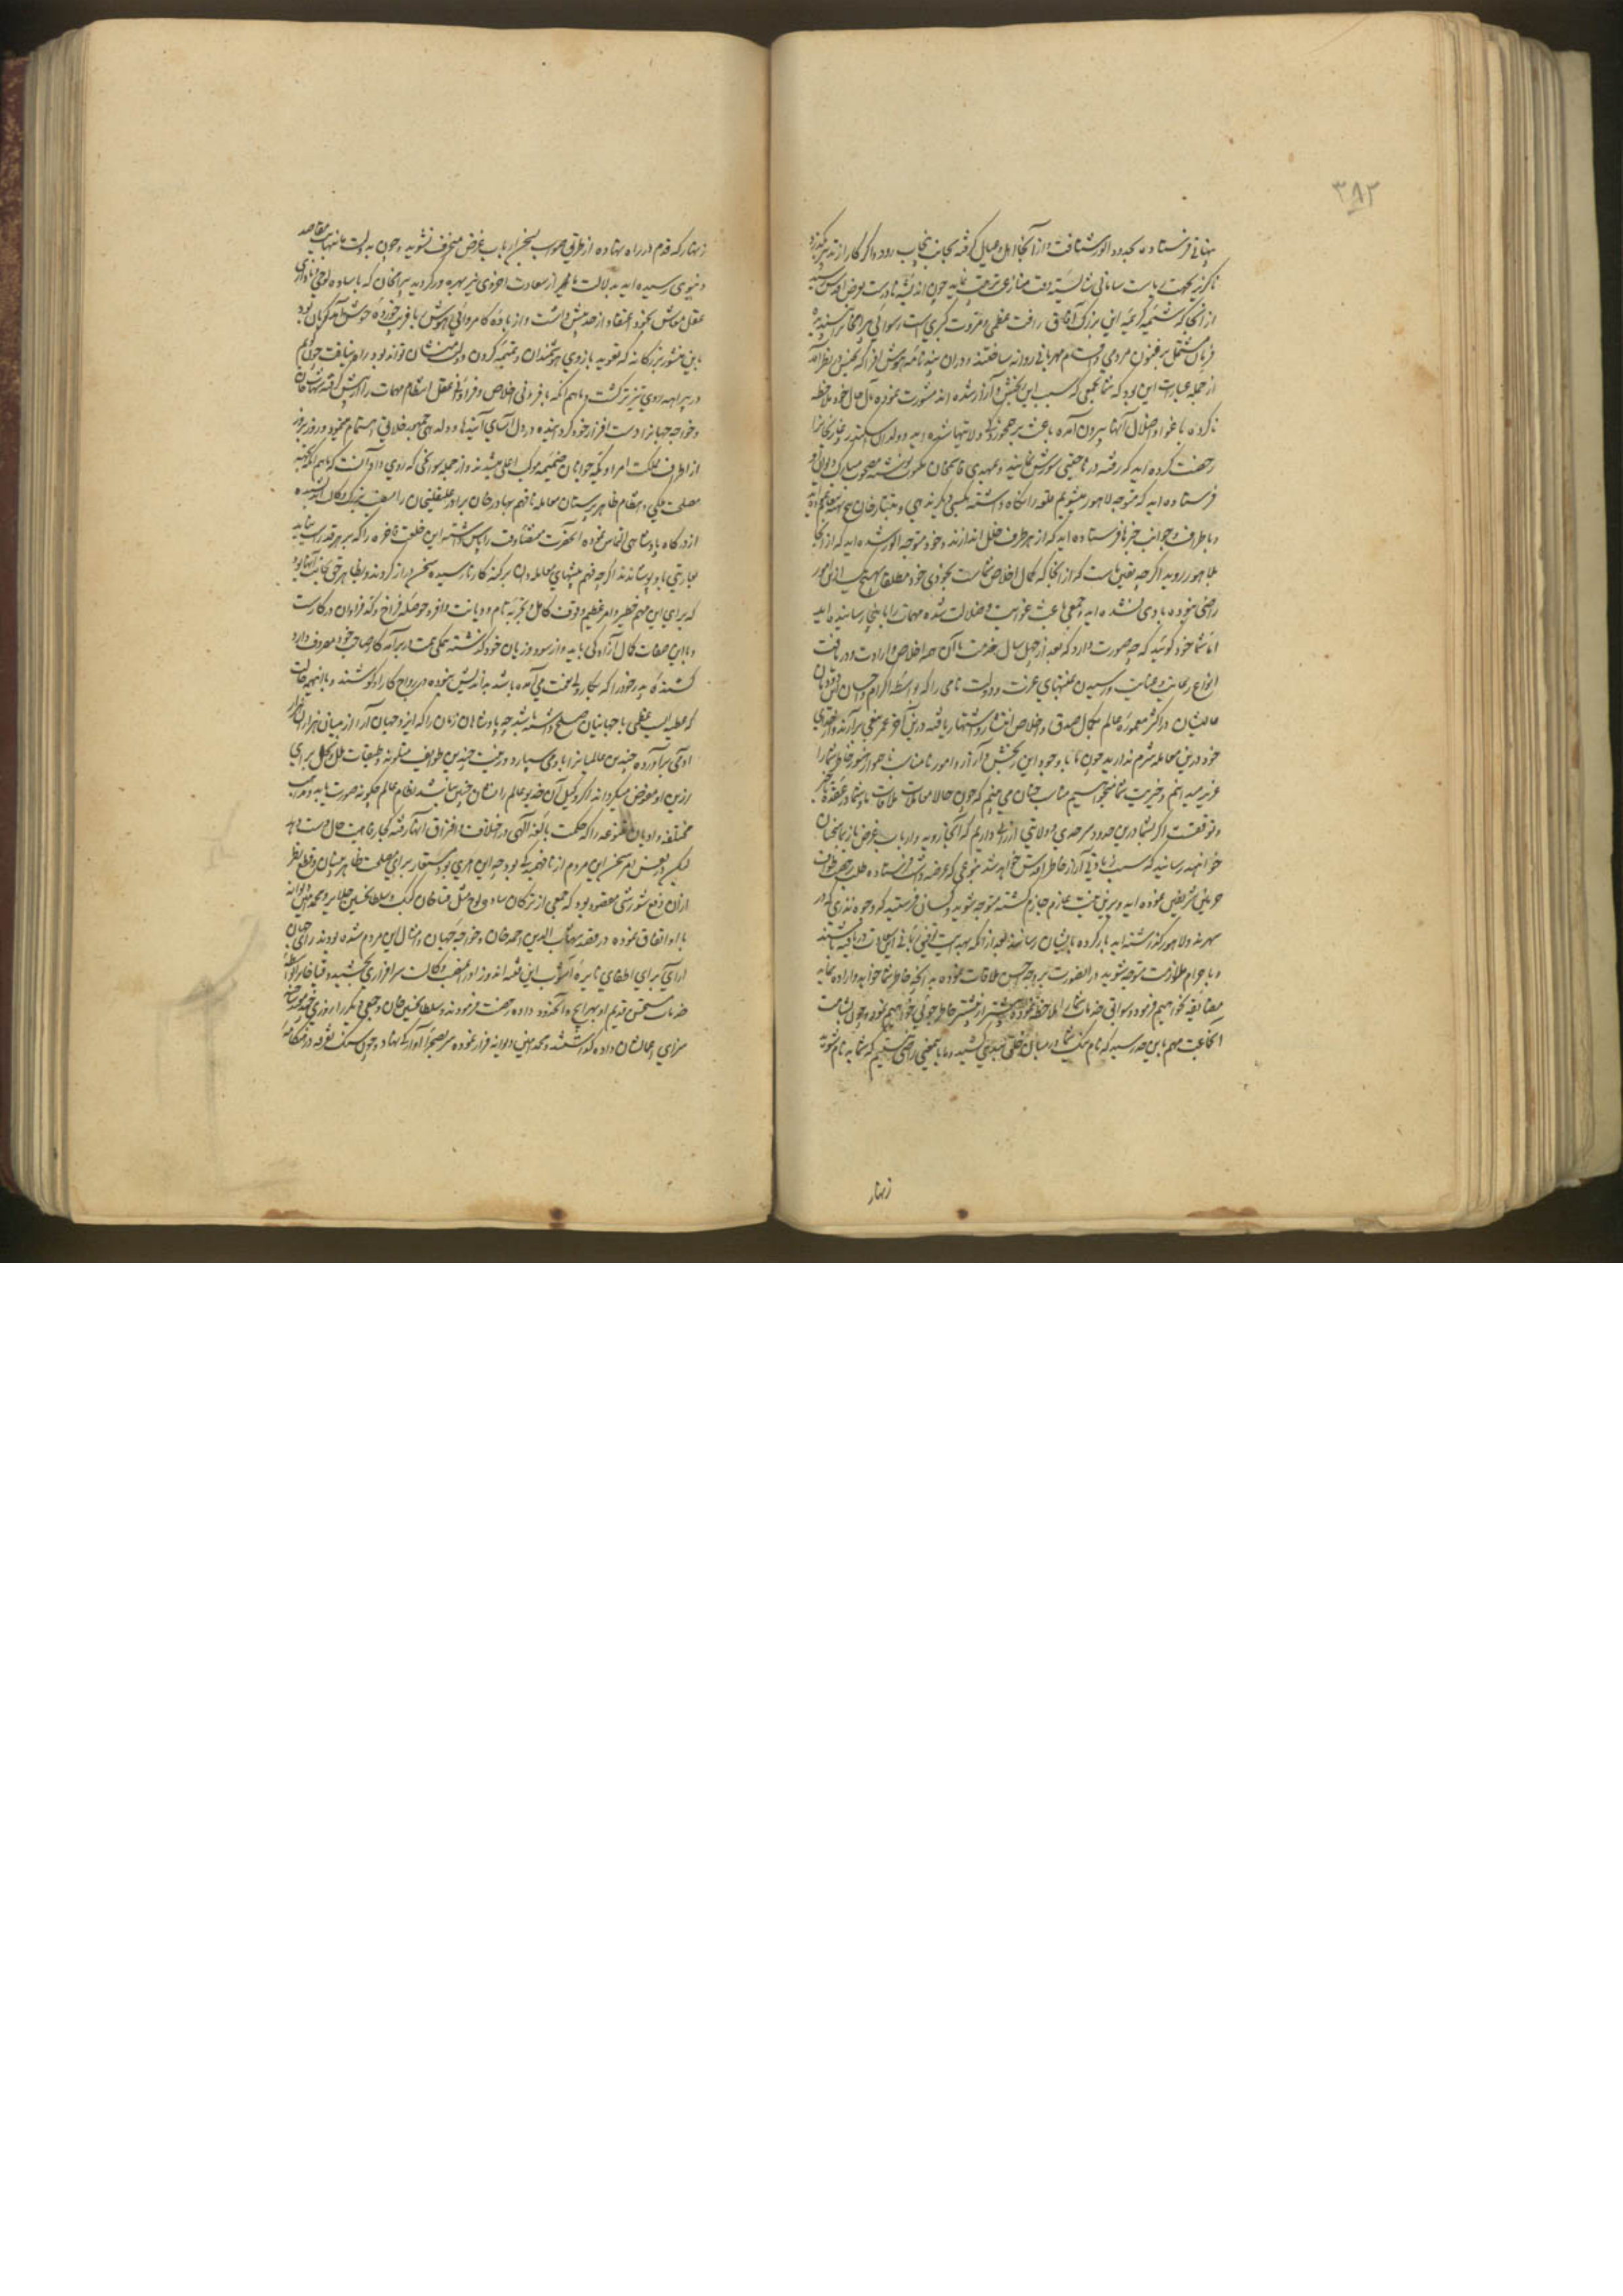 ۳۸۲
پنهانی فرستاده بحدود الور شتافت و از آنجا اهل و عیال گرفته بجانب پنجاب رود و اگر کار از تدبیر بگذرد
ناگزیر بجهت سامانی شایسته وقت منازعت نماید چون اندیشه نادرست بعرض اقدس رسید
از آنجا که شیمه کریمه این بزرگ آفاق رافت عظمی و مروت کبری است رسوائی بیرامخان نپسندیده
فرمان مشتمل بر فنون مردمی و اقسام مهربانی روانه ساختند و در آن پندنامه هوش افزا که بجنس در نظر آمد
از جمله عبارات این بود که شما بجمعی که سبب این رنجش و آزار شده اند مشورت نموده مآل حال خود ملاحظه
ناکرده باغوا و اضلال آنها بیرون آمده باعث برهمخوردگی ولایتها شده اید و ولدان سکندر و غازیخانرا
رخصت کرده اید که رفته در شورش نمایند و بمهدی قاسمخان مکتوب نوشته مصحوب مبارک دیوانه
فرستاده اید که متوجه لاهور میشویم قلعه را نگاه داشته بکسی دیگر ندهی و بتتارخان
و باطراف و جوانب خبرها فرستاده اید که از هر طرف خلل اندازند و خود متوجه الور شده اید که از آنجا
بلاهور روید اگرچه یقین ماست که از آنجا که کمال اخلاص شماست بخودی خود مطلقا بهیچیک ازین امور
راضی نبوده بادی نشده اید و جمعی باعث غوایت و ضلالت شده مهمات را باینجا رسانیده اند
اما شما خود گوئید که چه صورت دارد که بعد از چهل سال خدمت با آن همه اخلاص و ارادت و دریافت
انواع رعایت و عنایت و رسیدن بمنتهای عزت و دولت نامی را که بواسطه اکرام و احسان این دودمان
عالیشان در اکثر معموره عالم بکمال صدق و اخلاص انتشار و اشتهار یافته درین آخر عمر ببغی برآرند و از خدای
خود درین معامله شرم ندارید چون ما با وجود این رنجش و آزار و امور نامناسب ناهموار هنوز خاطر شما را
عزیز میدانیم و خیریت شما میخواهیم مناسب چنان می بینیم که چون حالا معاملات ملاقات ما و شما در عقده تاخیر
و توقفست اگر شما درین حدود سرحدی و ولایتی ارزانی داریم که آنجا روید و ارباب غرض باز سخنان
خواهند رسانید که سبب زیادتی آزار خاطر اقدس خواهد شد بنوعی که عرضه داشت فرستاده طلب رخصت طواف
حرمین شریفین نموده اید و برین نیت عازم جازم گشته متوجه شوید و کسانی فرستید که وجوه نذری که در
سهرند و لاهور گذاشته اید بار کرده بایشان رسانند بعد از آنکه بهدایت توفیق ربانی این سعادت دریافته باشند
و باحرام ملازمت متوجه شوید در آنصورت بروجه حسن ملاقات نموده بهر آنچه خاطر شما خواهد و اراده نماید
مضایقه نخواهیم فرمود و سوابق خدمات شما را ملاحظه نموده بیشتر از پیشتر خاطرجوئی خواهیم نمود و چون بشامت
آنجماعت مهم باین حد رسید که نام نیک شما در میان خلق ببدی کشید و ما باینمعنی راضی نیستیم که شما بدنام شوید
زنهار
زنهار که قدم در راه نهاده از طریق صواب بسخن ارباب غرض منحرف نشوید و چون بدولت ما بنهایت مقاصد
دنیوی رسیده اید بدلالت ما از سعادت اخروی نیز بهره ور گردید بیرامخان که با ساده لوحی و نادانی
عقل معاش بخود اعتقاد از حد بیش داشت و از باده کامروائی بیهوش یا فریب خورده خوش آمدگویان بود
باین منشور بزرگانه که تعویذ بازوی هوشمندان و تمیمه گردن دولتمنشان تواند بود راه نیافت چون
در بیراهه روی تیزتر گشت و ماهم انگه با فزونی اخلاص و فراوانی عقل انتظام مهمات را پیش گرفته شهابخان
و خواجه جهانرا دست افزار خود گردانیده در دل آسای آیندها و دلدهی جمهور خلایق اهتمام مینمود و روز بروز
از اطراف مملکت امرا و یکه جوانان ضمیمه موکب اعلی میشدند و از جمله سوانحی که روی داد آنست که ماهم انگه بجهت
مصلحت ملکی و انتظام ظاهرپرستان معامله نافهم بهادرخان برادر علیقلیخان را بمنصب بزرگ وکالت اندیشیده
از درگاه پادشاهی التماس نموده آنحضرت مقتضاء وقت را پاس داشته این خلعت فاخره را که بر هر قد راست نیاید
عاریتی باو پوشاندند اگرچه فهم پیشهای معامله دان بر کنه کار نارسیده سخن دراز کردند و بظاهر حق بجانب آنها بود
که برای این مهم خطیر و امر عظیم وقوف کامل و تجربه تمام و دیانت وافر و حوصله فراخ و فراوان در کار است
و با این صفات کمال آزادگی باید و از سود و زیان خود گذشته همگی همت در برآمد کار صاحب خود مصروف دارد
کشنده پدر خود را که بکار ولی نعمت می آمده باشد بداندیش نبوده در رواج کار او کوشند و با اینهمه حالت
که عطیه ایست عظمی با جهانیان صلح داشته باشد چه پادشاهان زمان را که ایزد جهان آرا از میان هزاران هزار
آدمی برآورده چندین عالمیانرا باو می سپارد و رعیت چندین طوایف متلونه و طبقات ملل و نحل برای
رزین او مفوض میگرداند اگر وکیل آن خدیو عالم را نشان چنین نباشد نظام عالم چگونه صورت یابد و مذاهب
مختلفه و ادیان متنوعه را که حکمت بالغه الهی در اختلاف و افتراق آنها رفته کجا رفاهیت حال دست دهد
لیکن در نفس امر سخن این مردم از نافهمیدگی بود چه این امری بود مستعار برای مصلحت ظاهربینان و قطع نظر
از آن رفع شورشی مقصود بود که جمعی از ترکان ساده لوح مثل قیاخان کنگ و سلطان حسین جلایر و محمد امین دیوانه
با او اتفاق نموده در قصد شهاب الدین احمد خان و خواجه جهان و امثال این مردم شده بودند رای جهان
آرای برای اطفای نایره آشوب این فتنه اندوز را در منصب وکالت سرافرازی بخشید و قیاخان را بواسطه
خدمات مستحسن قدیم او بهرایج و آنحدود داده رخصت فرمودند و سلطان حسین خان و جمعی دیگر را روزی چند محبوس ساخته
سزای اعمالشان داده گذاشتند و محمد امین دیوانه فرار نموده سر بصحرای آوارگی نهاد و چون سنگ تفرقه در هنگامه